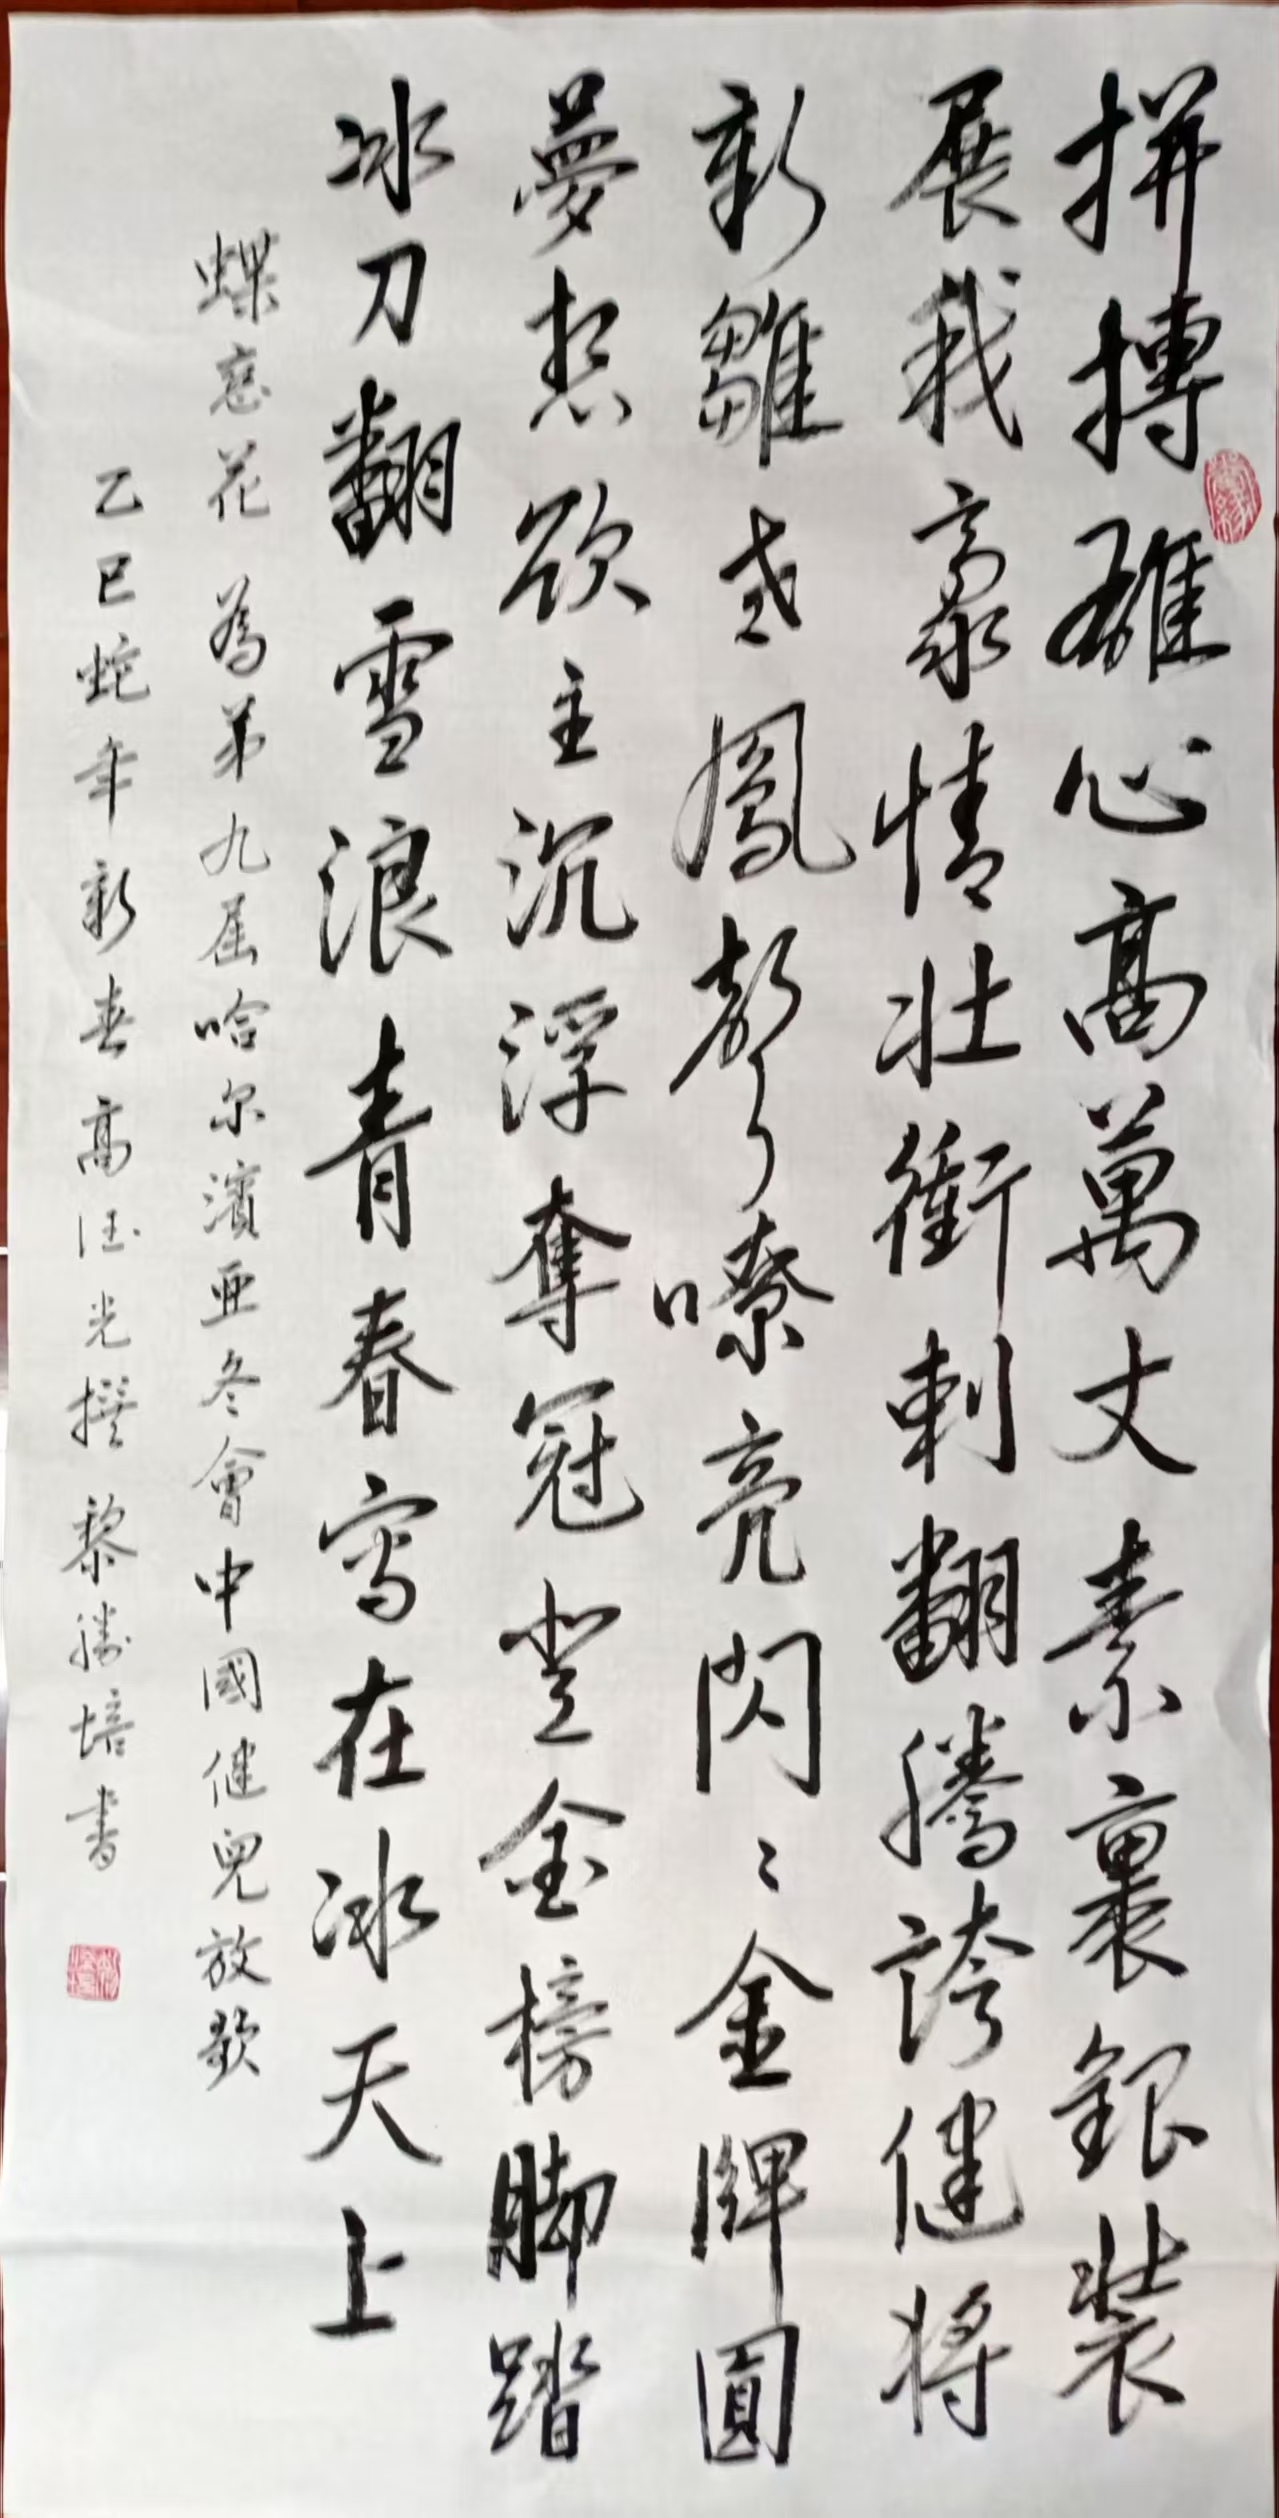 拼搏雄心高萬丈素裹銀裝
展我豪情壯衝刺翻騰誇健將
新雛老鳳聲嘹亮閃〻金牌圓
夢想欲主沉浮奪冠登金榜脚踏
冰刀翻雪浪青春寫在冰天上
蝶恋花 為第九屆哈尔濱亚冬會中國健兒放歌
乙巳蛇年新春高汪光撰黎勝培書